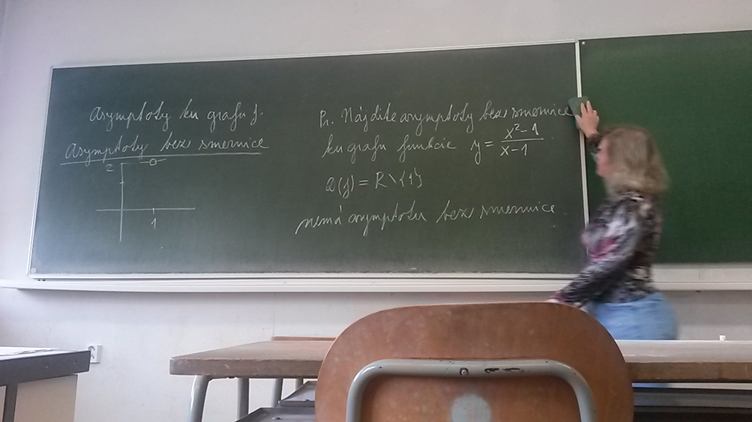 Asymptoty ku grafu f.
Asymptoty bez smernice
2
1
Pr. Nájdite asymptoty bez smernice
ku grafu funkcie y = x²-1 / x-1
D(f) = R \ {1}
nemá asymptotu bez smernice